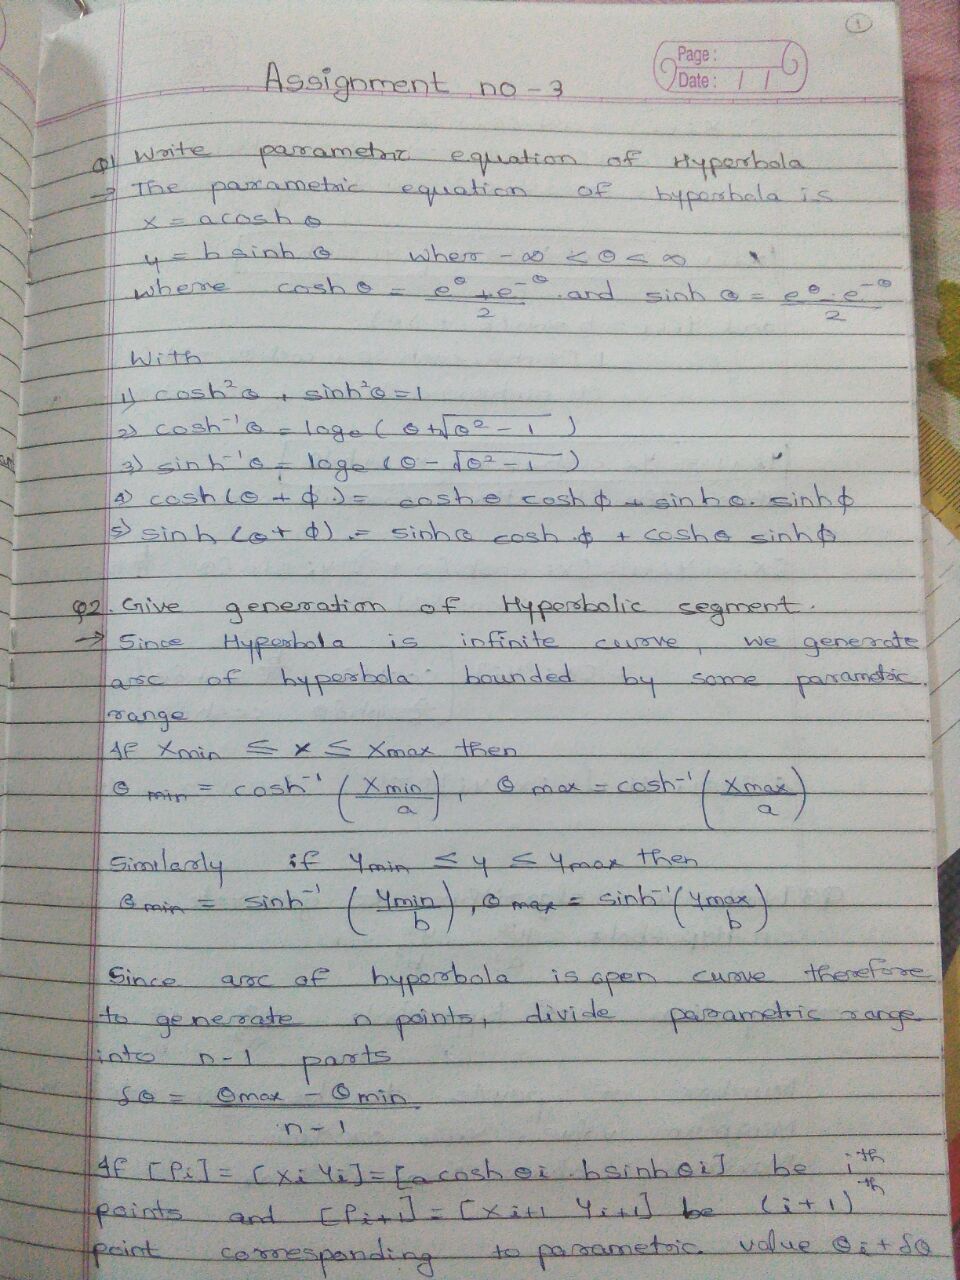 1
Assignment no - 3
Page :
Date : / /
Q1 Write parametric equation of Hyperbola
→ The parametric equation of hyperbola is
x = a cosh θ
y = b sinh θ wher -∞ < θ < ∞
where cosh θ = e^θ + e^-θ / 2 and sinh θ = e^θ - e^-θ / 2
With
1) cosh²θ , sinh²θ = 1
2) cosh⁻¹θ = loge ( θ + √θ² - 1 )
3) sinh⁻¹θ = loge ( θ - √θ² - 1 )
4) cosh (θ + φ ) = cosh θ cosh φ + sinh θ. sinh φ
5) sinh (θ + φ) = sinh θ cosh φ + cosh θ sinh φ
Q2. Give generation of Hyperbolic segment.
→ Since Hyperbola is infinite curve, we generate
arc of hyperbola bounded by some parametric
range
If Xmin ≤ x ≤ Xmax then
θ min = cosh⁻¹ ( Xmin / a ), θ max = cosh⁻¹ ( Xmax / a )
Similarly if Ymin ≤ y ≤ Ymax then
θ min = sinh⁻¹ ( Ymin / b ), θ max = sinh⁻¹ ( Ymax / b )
Since arc of hyperbola is open curve therefore
to generate n points, divide parametric range
into n-1 parts
δθ = θmax - θmin / n-1
If [Pi] = [Xi Yi] = [a cosh θi b sinh θi] be ith
points and [Pi+1] = [Xi+1 Yi+1] be (i+1)th
point corresponding to parametric value θi + δθ